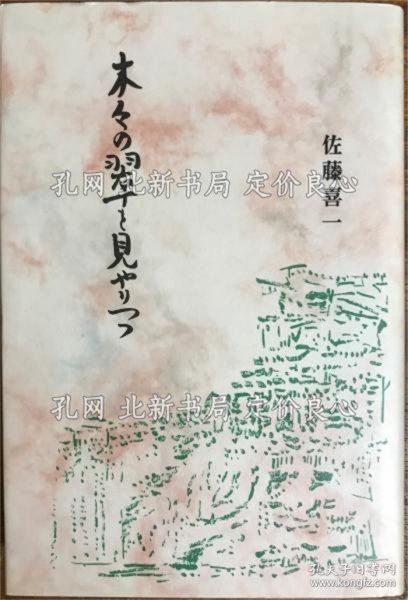 木々の翠を見やりつつ
佐藤喜一
孔网 北新书局 定价良心
孔网 北新书局 定价良心
孔夫子旧书网
book.kongfz.com